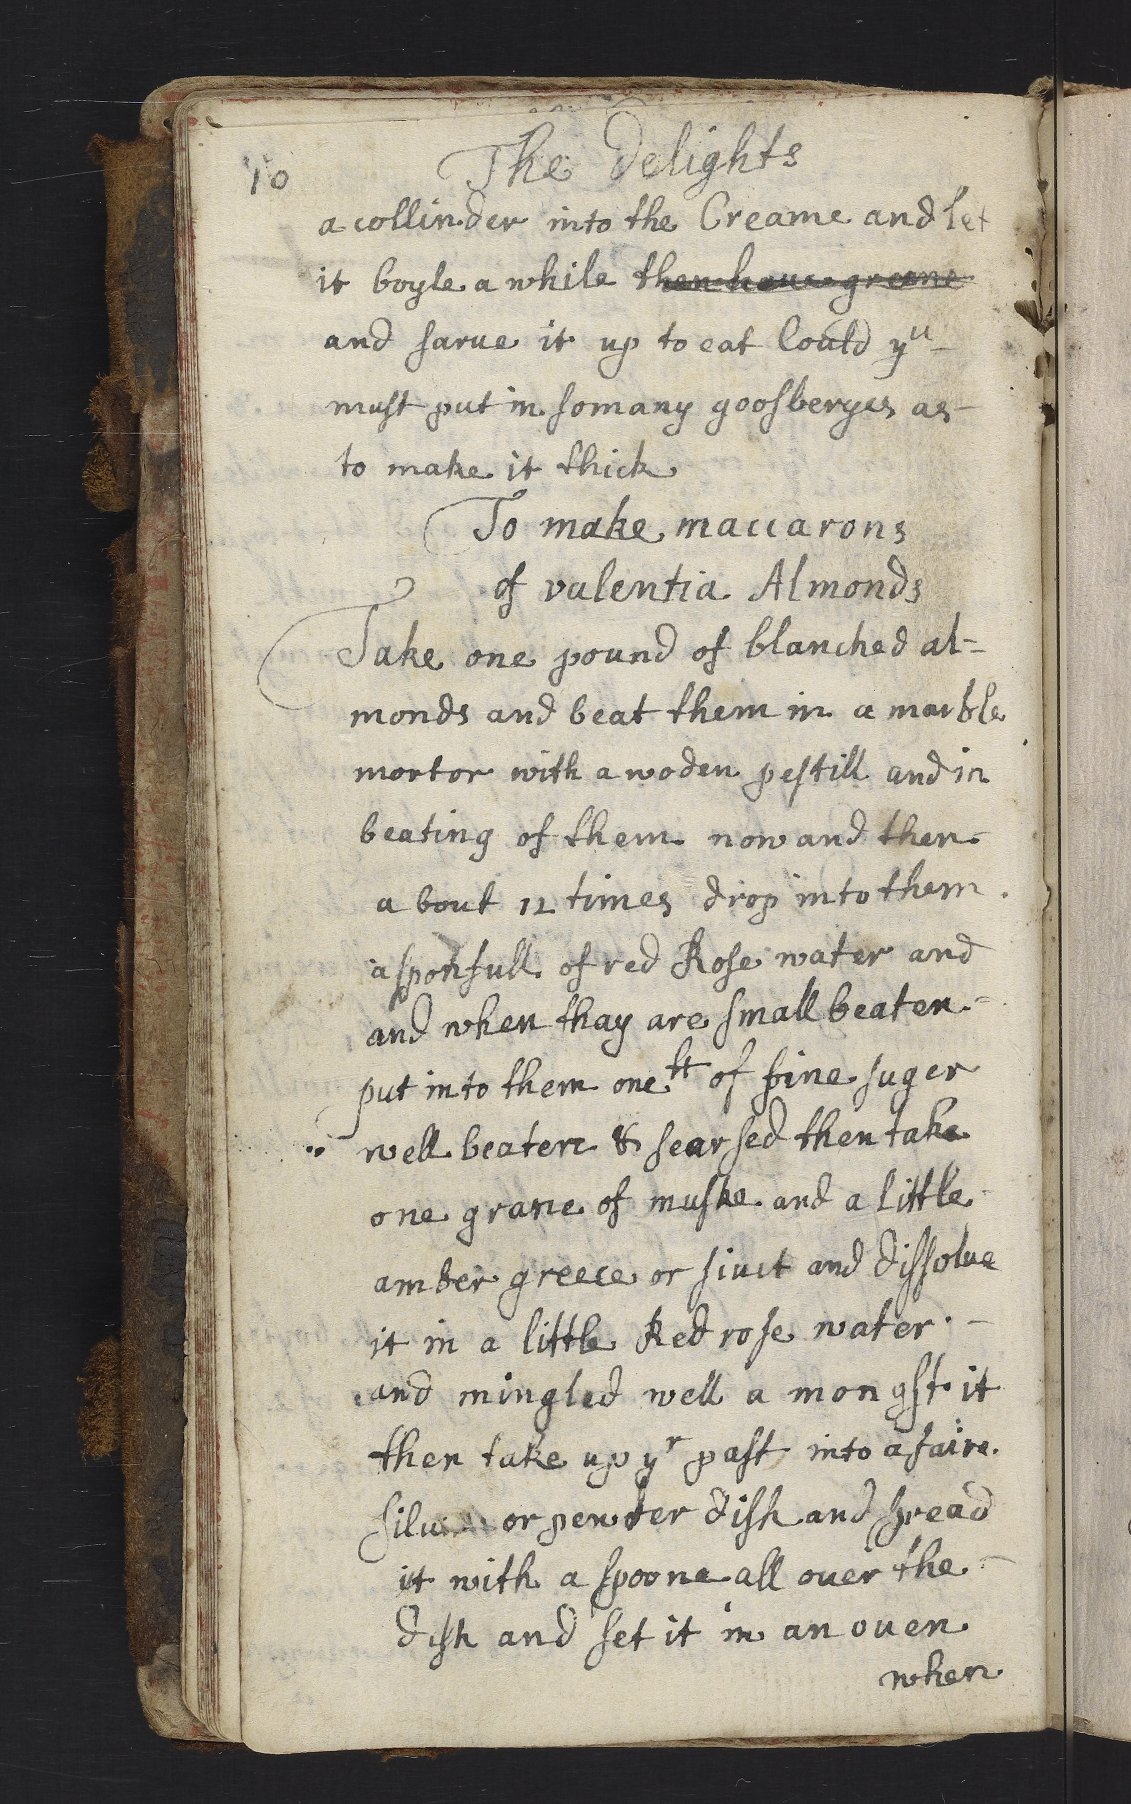 10
The Delights
a collinder into the Creame and let
it boyle a while then haue greene
and sarue it up to eat Could yu
must put in somany goosberyes as-
to make it thick
To make maccarons
of valentia Almonds
Take one pound of blanched al-
monds and beat them in a marble
mortor with a woden pestill and in
beating of them now and then-
a bout 12 times drop into them
a sponfull of red Rose water and
and when thay are small beaten-
put into them one tt of fine suger
well beaten & searsed then take
one grane of muske and a little
amber greece or siuet and dissolue
it in a little Red rose water-
and mingled well a mongst it
then take up yr past into a faire
or pewder dish and spread
it with a spoone all ouer the-
dish and set it in an ouen
when